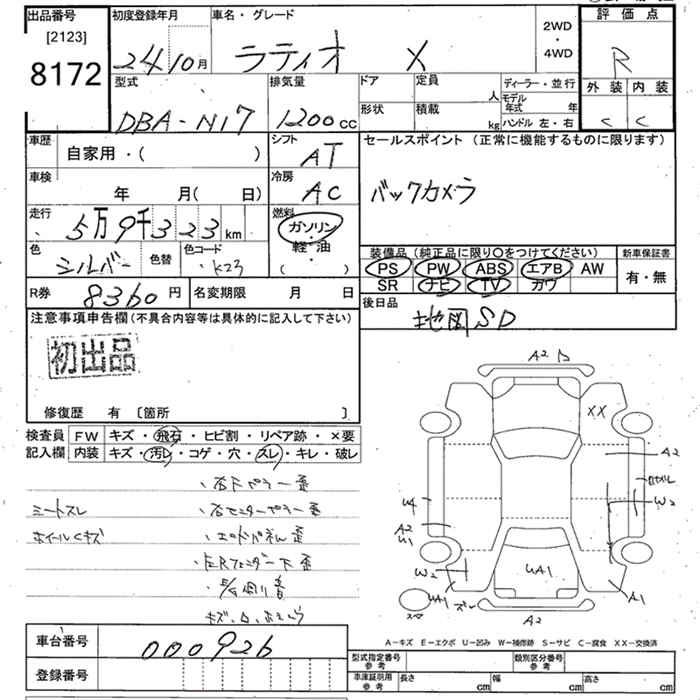 出品番号
[2123]
8172
初度登録年月
24 10月
車名・グレード
ラティオ X
2WD
・
4WD
評価点
R
外装 内装
C C
型式
DBA-N17
排気量
1200cc
ドア
定員
人
形状
積載
kg
ディーラー・並行
モデル
年式 年
ハンドル 左・右
車歴
自家用・( )
シフト
AT
セールスポイント (正常に機能するものに限ります)
バックカメラ
車検
年 月( 日)
冷房
AC
走行
5万9千323km
燃料
ガソリン
・
軽・油
( )
色
シルバー
色替
色コード
K23
装備品 (純正品に限り〇をつけてください)
PS PW ABS エアB AW
SR ナビ TV カワ
新車保証書
有・無
R券
8360円
名変期限 月 日
後日品
地図SD
注意事項申告欄(不具合内容等は具体的に記入して下さい)
初出品
修復歴 有 [箇所 ]
検査員
記入欄
FW キズ・飛石・ヒビ割・リペア跡・×要
内装 キズ・汚レ・コゲ・穴・スレ・キレ・破レ
・右Fピラー歪
シートスレ ・右センターピラー歪
ホイールキズ ・エンドパネル歪
A2
XX
A2
W2
UA
A2
U1
W2
UA1
UA1
A1
A2
A-キズ E-エクボ U-凹み W-補修跡 S-サビ C-腐食 XX-交換済
車台番号
000926
登録番号
型式指定番号
参考
類別区分番号
参考
車庫証明用
参考
長さ cm 幅 cm 高さ cm